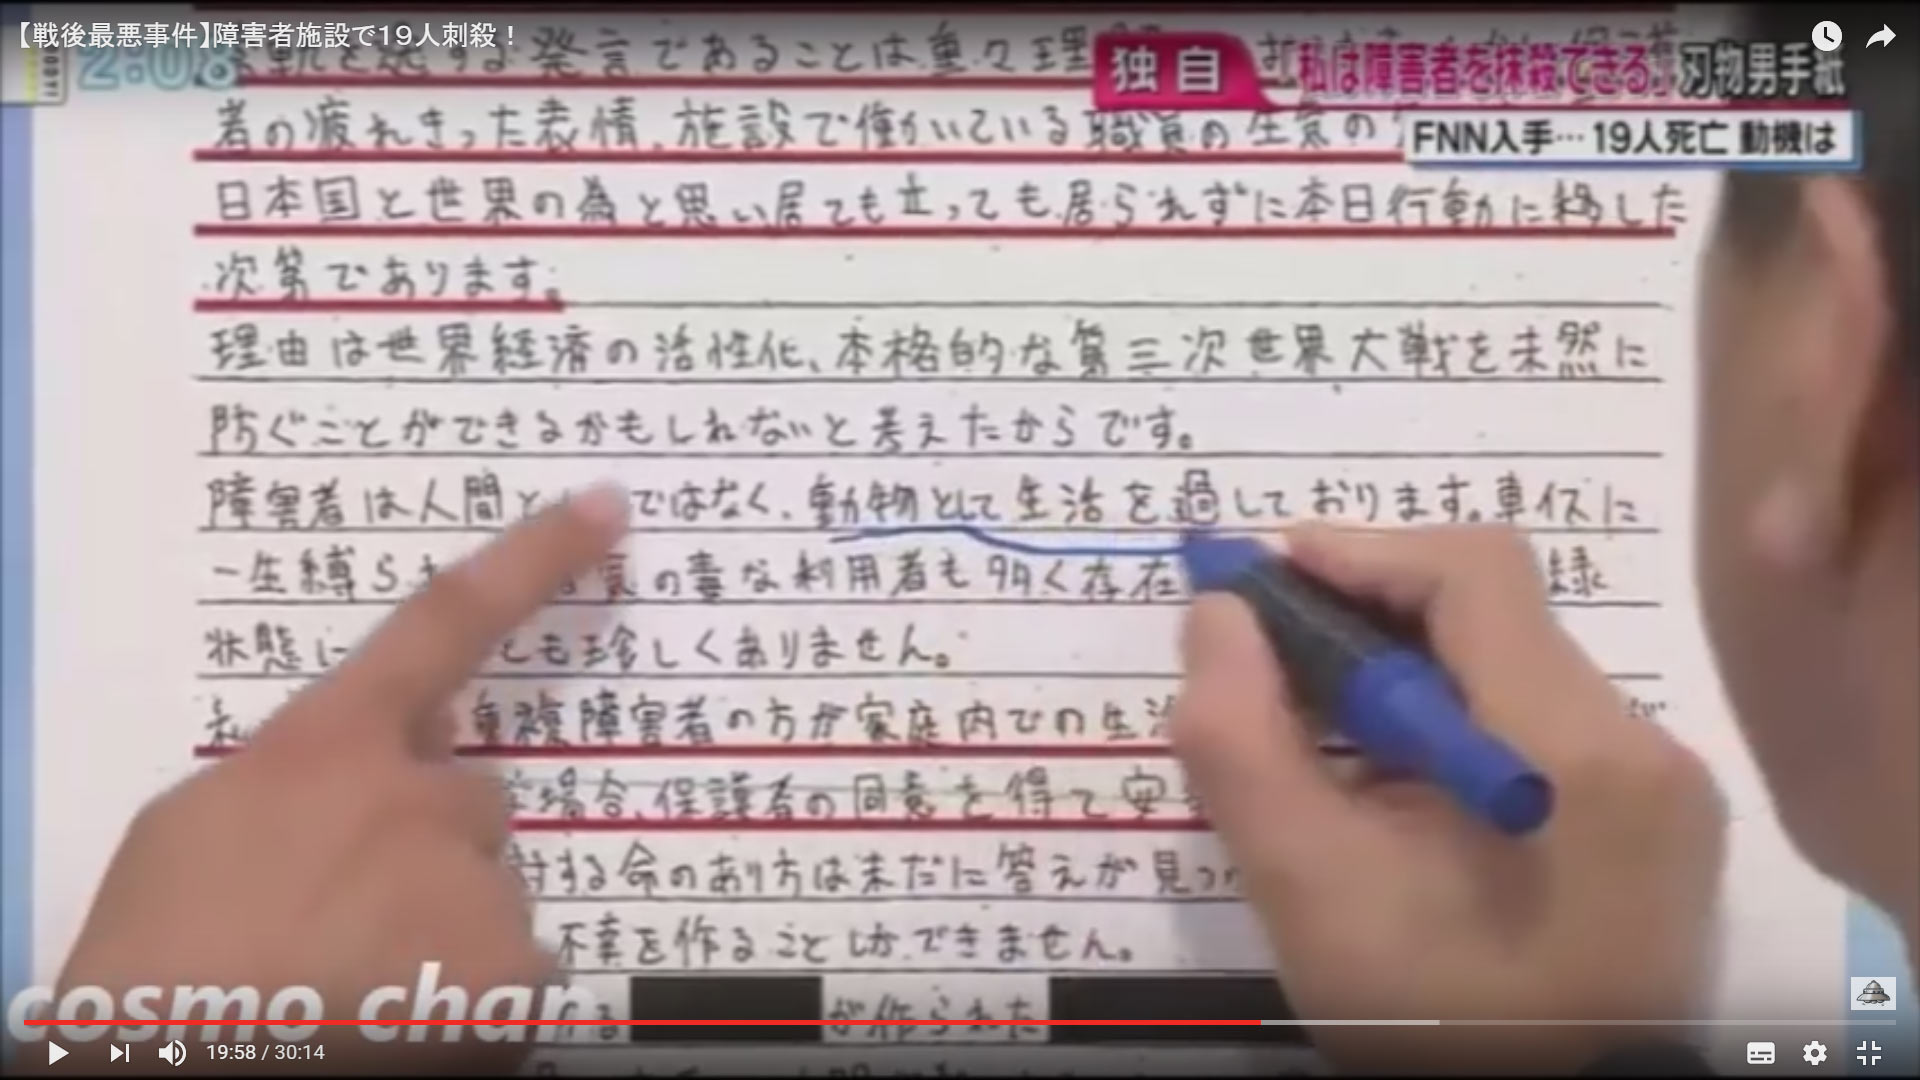 【戦後最悪事件】障害者施設で19人刺殺！
2:08
独自
「私は障害者を抹殺できる」刃物男手紙
FNN入手…19人死亡 動機は
発言であることは重々理
者の疲れきった表情、施設で働いている職員の生気の
日本国と世界の為と思い居ても立っても居られずに本日行動に移した
次第であります。
理由は世界経済の活性化、本格的な第三次世界大戦を未然に
防ぐことができるかもしれないと考えたからです。
障害者は人間と ではなく、動物として生活を過しております。車イスに
一生縛ら の毒な利用者も多く存在 縁
状態に とも珍しくありません。
私 重複障害者の方が家庭内での生活
場合、保護者の同意を得て安
対する命のあり方は未だに答えが見つ
不幸を作ることしかできません。
が作られた
cosmo chan
19:58 / 30:14